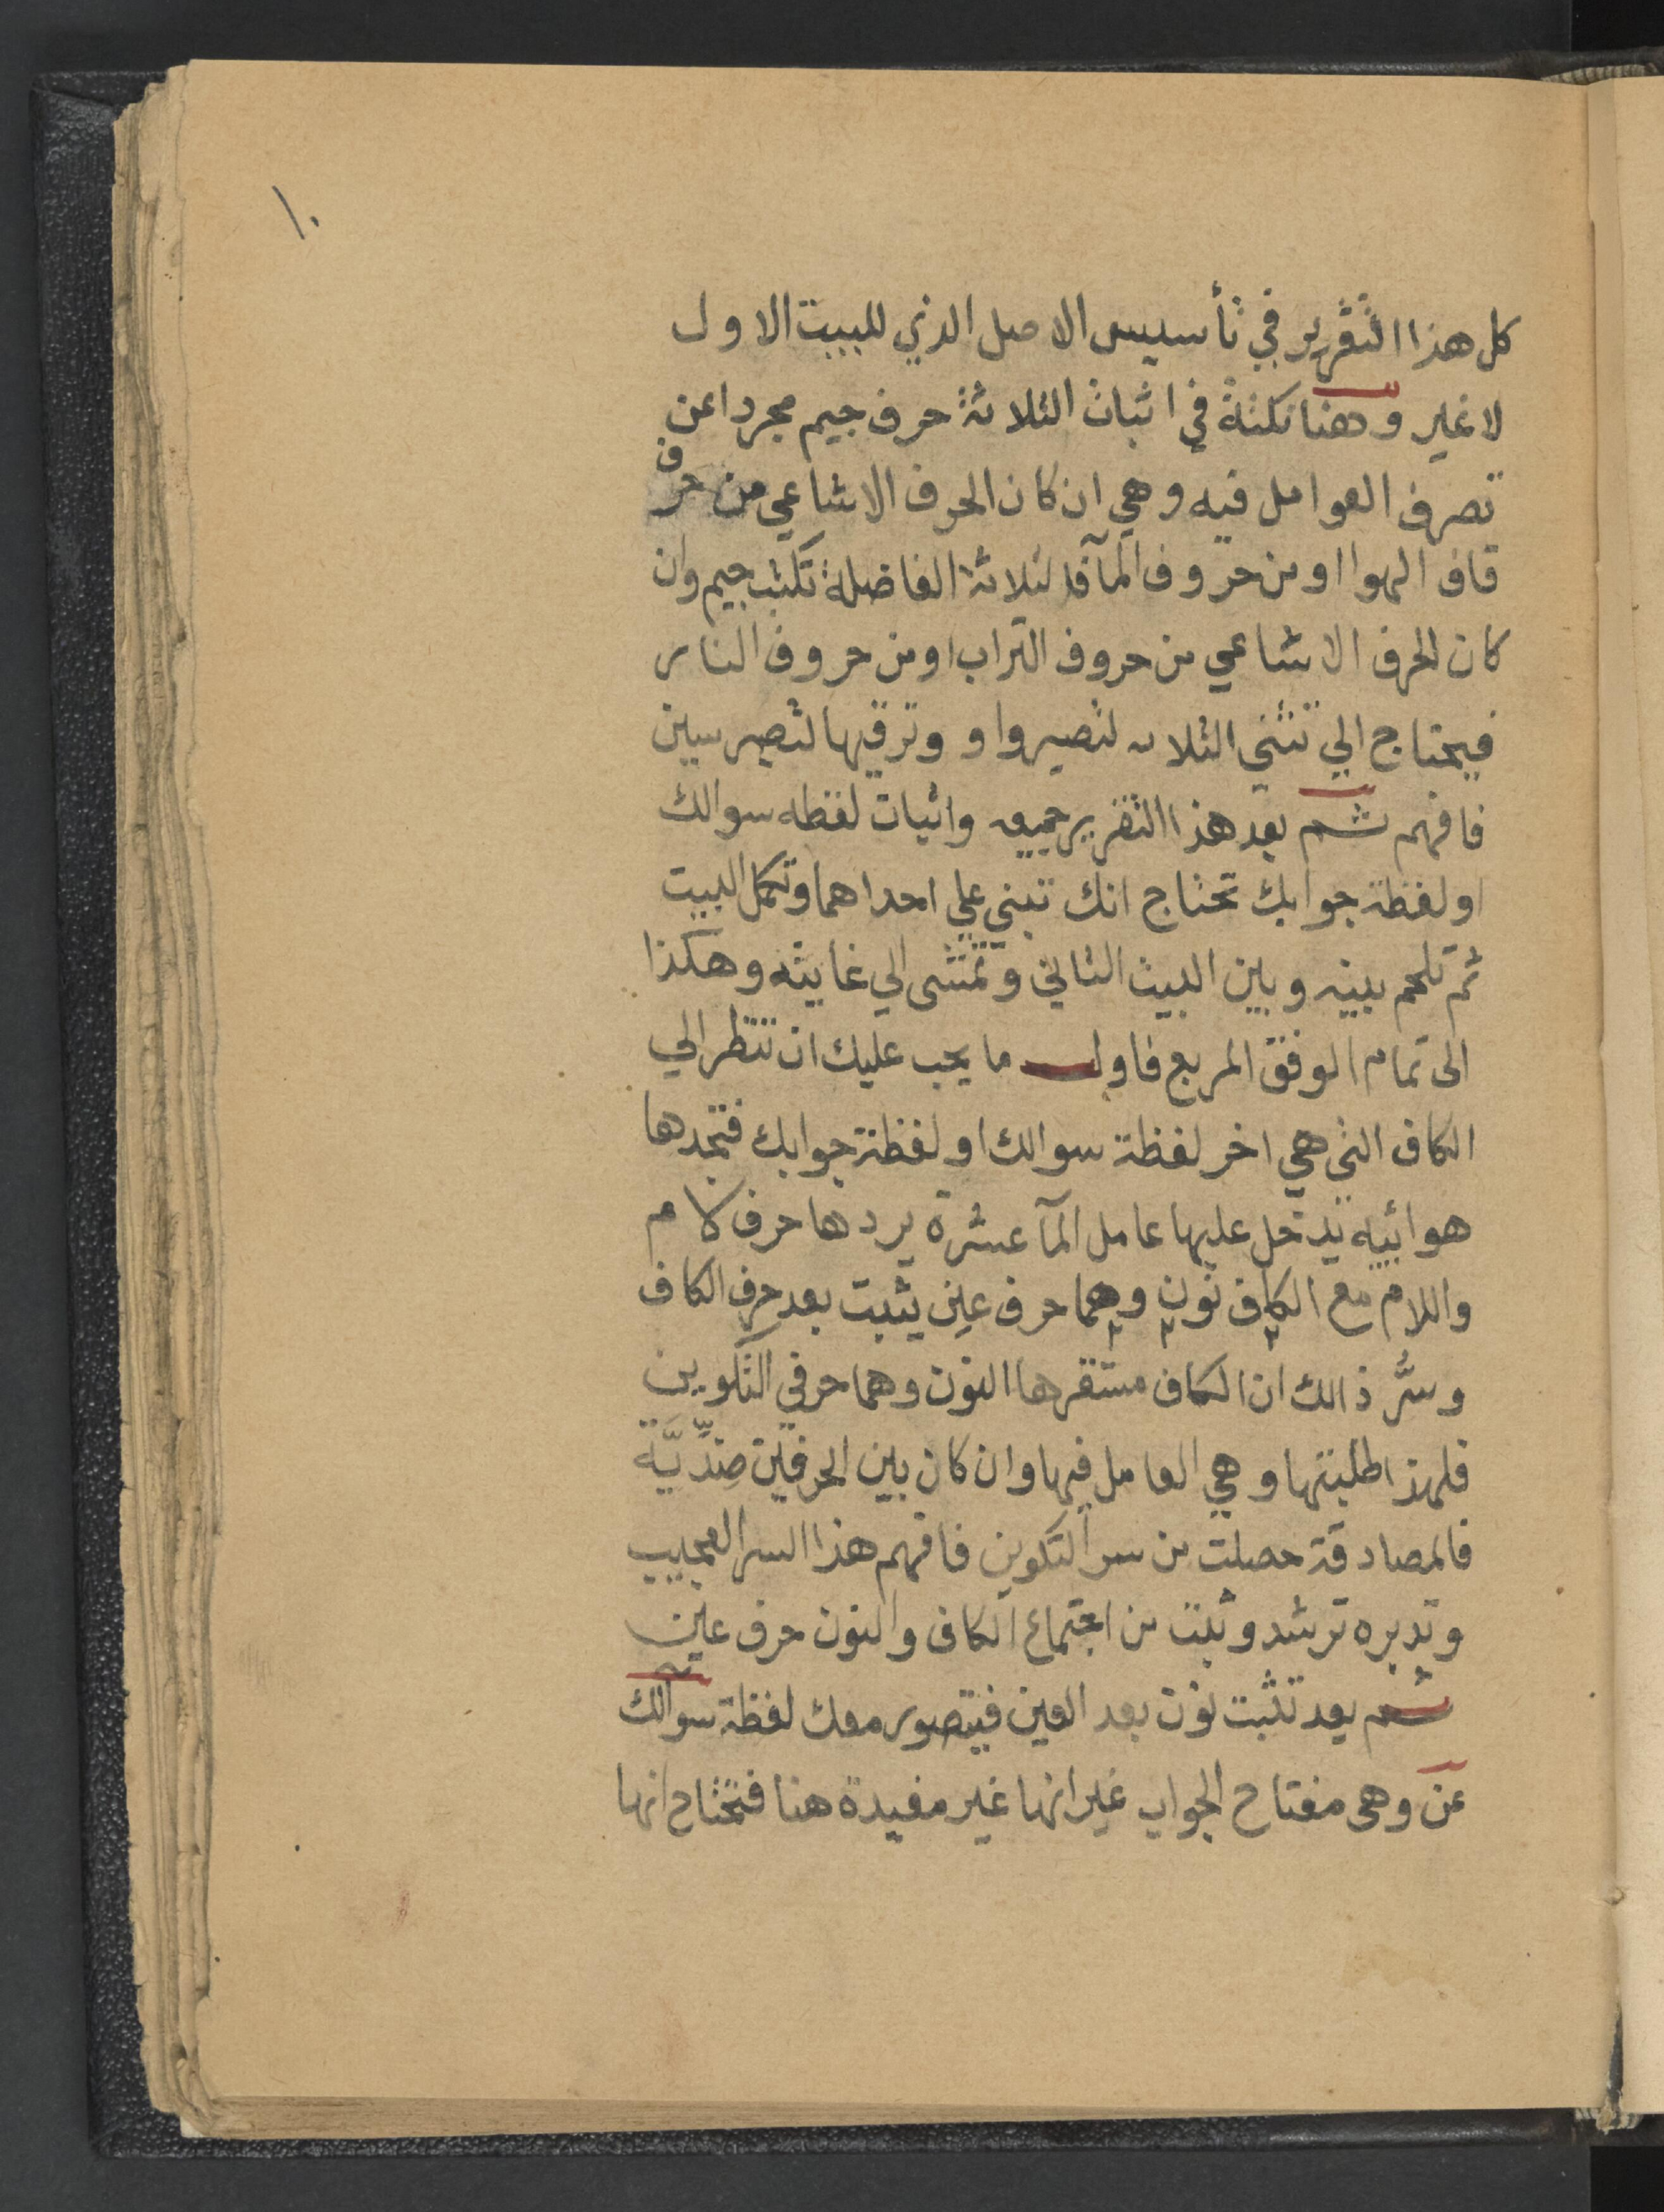 ١٠
كل هذا التقرير في تأسيس الاصل الذي للبيت الاول
لا غير وهنا نكتة في اثبات الثلاثة حرف جيم مجردا عن
تصرف العوامل فيه وهي ان كان الحرف الاشاعي من حرف
قاف الهوا او من حروف المآ فالثلاثة الفاضلة تكتب جيم وان
كان الحرف الاشاعي من حروف التراب او من حروف النار
فيحتاج الي تثني الثلاثه لتصير واو وترقيها لتصير سين
فافهم ثم بعد هذا التقرير جميعه واثبات لفظه سوالك
او لفظة جوابك تحتاج انك تبني علي احداهما وتكمل البيت
ثم تلحم بينه وبين البيت الثاني وتمتشى الي غايته وهكذا
الى تمام الوفق المربع فاول ما يجب عليك ان تنظر الي
الكاف التي هي اخر لفظة سوالك او لفظة جوابك فتجدها
هوائيه يدخل عليها عامل المآ عشرة يردها حرف لام
واللام مع الكاف نون وهما حرف عين يثبت بعد حرف الكاف
وسر ذالك ان الكاف مستقرها النون وهما حرفي التكوين
فلهذا طلبتها وهي العامل فيها وان كان بين الحرفين ضدية
فالمصادقة حصلت من سر التكوين فافهم هذا السر العجيب
وتدبره ترشد وثبت من اجتماع الكاف والنون حرف عين
ثم بعد تثبت نون بعد العين فيتصور معك لفظة سوالك
عن وهى مفتاح الجواب غير انها غير مفيدة هنا فتحتاح انها